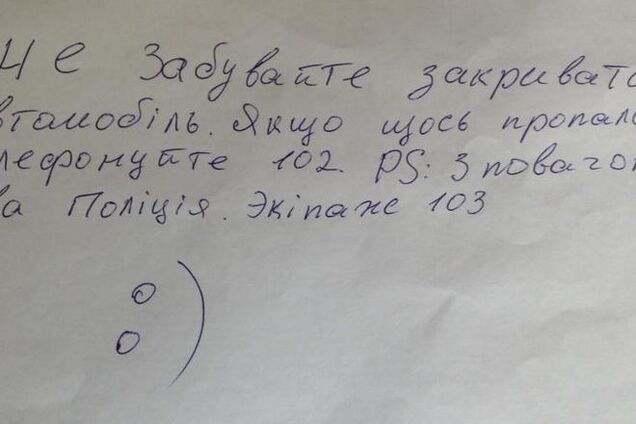 Не забувайте закривати
втомобіль. Якщо щось пропало
лефонуйте 102. PS: З повагою
ва Поліція. Экіпаж 103
:)